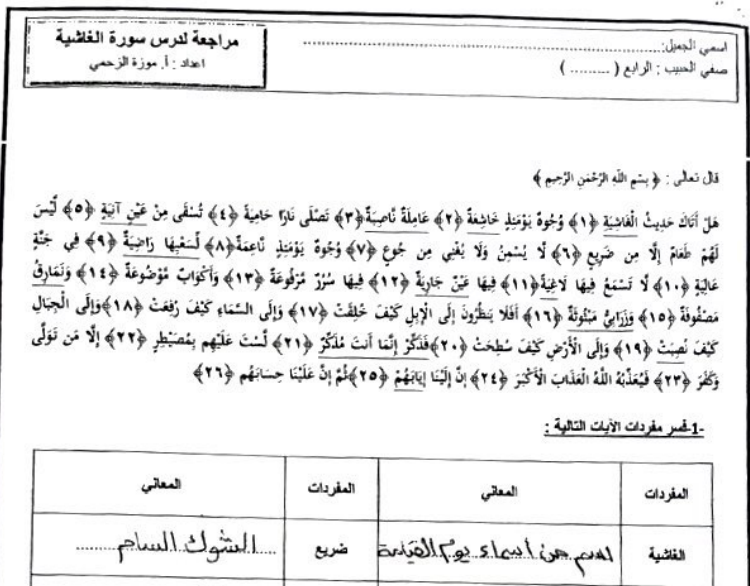 مراجعة لدرس سورة الغاشية
اعداد : أ. موزة الزحمي
اسمي الجميل:........................................................
صفي الحبيب : الرابع ( ......... )
قال تعالى : ﴿ بِسْمِ اللَّهِ الرَّحْمَنِ الرَّحِيمِ ﴾
هَلْ أَتَاكَ حَدِيثُ الْغَاشِيَةِ ﴿١﴾ وُجُوهٌ يَوْمَئِذٍ خَاشِعَةٌ ﴿٢﴾ عَامِلَةٌ نَّاصِبَةٌ ﴿٣﴾ تَصْلَى نَارًا حَامِيَةً ﴿٤﴾ تُسْقَى مِنْ عَيْنٍ آنِيَةٍ ﴿٥﴾ لَّيْسَ
لَهُمْ طَعَامٌ إِلَّا مِن ضَرِيعٍ ﴿٦﴾ لَا يُسْمِنُ وَلَا يُغْنِي مِن جُوعٍ ﴿٧﴾ وُجُوهٌ يَوْمَئِذٍ نَّاعِمَةٌ ﴿٨﴾ لِّسَعْيِهَا رَاضِيَةٌ ﴿٩﴾ فِي جَنَّةٍ
عَالِيَةٍ ﴿١٠﴾ لَّا تَسْمَعُ فِيهَا لَاغِيَةً ﴿١١﴾ فِيهَا عَيْنٌ جَارِيَةٌ ﴿١٢﴾ فِيهَا سُرُرٌ مَّرْفُوعَةٌ ﴿١٣﴾ وَأَكْوَابٌ مَّوْضُوعَةٌ ﴿١٤﴾ وَنَمَارِقُ
مَصْفُوفَةٌ ﴿١٥﴾ وَزَرَابِيُّ مَبْثُوثَةٌ ﴿١٦﴾ أَفَلَا يَنظُرُونَ إِلَى الْإِبِلِ كَيْفَ خُلِقَتْ ﴿١٧﴾ وَإِلَى السَّمَاءِ كَيْفَ رُفِعَتْ ﴿١٨﴾ وَإِلَى الْجِبَالِ
كَيْفَ نُصِبَتْ ﴿١٩﴾ وَإِلَى الْأَرْضِ كَيْفَ سُطِحَتْ ﴿٢٠﴾ فَذَكِّرْ إِنَّمَا أَنتَ مُذَكِّرٌ ﴿٢١﴾ لَّسْتَ عَلَيْهِم بِمُصَيْطِرٍ ﴿٢٢﴾ إِلَّا مَن تَوَلَّى
وَكَفَرَ ﴿٢٣﴾ فَيُعَذِّبُهُ اللَّهُ الْعَذَابَ الْأَكْبَرَ ﴿٢٤﴾ إِنَّ إِلَيْنَا إِيَابَهُمْ ﴿٢٥﴾ ثُمَّ إِنَّ عَلَيْنَا حِسَابَهُم ﴿٢٦﴾
1-فسر مفردات الآيات التالية :
المفردات المعاني المفردات المعاني
الغاشية اسم من أسماء يوم القيامة ضريع الشوك السام